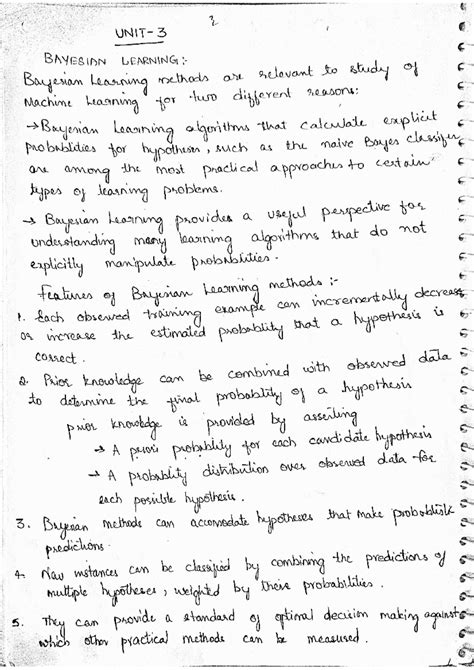 2
UNIT-3
BAYESIAN LEARNING:-
Bayesian Learning methods are relevant to study of
Machine Learning for two different reasons:
→Bayesian Learning algorithms that calculate explicit
probabilities for hypotheses, such as the naive Bayes classifier
are among the most practical approaches to certain
types of learning problems.
→ Bayesian Learning provides a useful perspective for
understanding many learning algorithms that do not
explicitly manipulate probabilities.
Features of Bayesian Learning methods :-
1. Each observed training example can incrementally decrease
or increase the estimated probability that a hypothesis is
correct.
2. Prior knowledge can be combined with observed data
to determine the final probability of a hypothesis
prior knowledge is provided by asserting
→ A prior probability for each candidate hypothesis
→ A probability distribution over observed data for
each possible hypothesis.
3. Bayesian methods can accomodate hypotheses that make probabilistic
predictions.
4. New instances can be classified by combining the predictions of
multiple hypotheses, weighted by their probabilities.
5. They can provide a standard of optimal decision making against
which other practical methods can be measured.